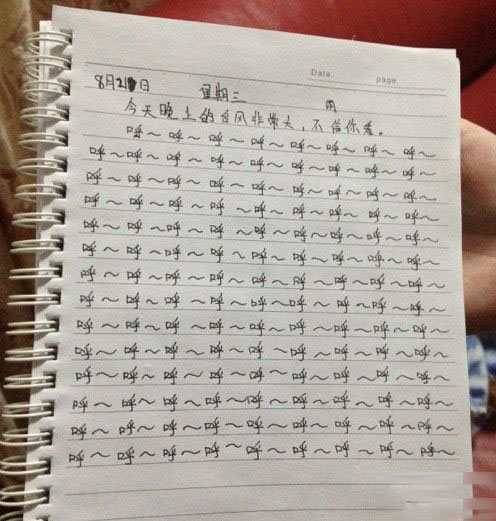 Date. page.
8月21日 星期三 雨
今天晚上的台风非常大,不信你看。
呼～呼～呼～呼～呼～呼～呼～呼～
呼～呼～呼～呼～呼～呼～呼～呼～呼～
呼～呼～呼～呼～呼～呼～呼～呼～呼～
呼～呼～呼～呼～呼～呼～呼～呼～呼～
呼～呼～呼～呼～呼～呼～呼～呼～呼～
呼～呼～呼～呼～呼～呼～呼～呼～呼～
呼～呼～呼～呼～呼～呼～呼～呼～呼～
呼～呼～呼～呼～呼～呼～呼～呼～呼～
呼～呼～呼～呼～呼～呼～呼～呼～呼～
呼～呼～呼～呼～呼～呼～呼～呼～呼～
呼～呼～呼～呼～呼～呼～呼～呼～呼～
呼～呼～呼～呼～呼～呼～呼～呼～呼～
呼～呼～呼～呼～呼～呼～呼～呼～呼～
呼～呼～呼～呼～呼～呼～呼～呼～呼～